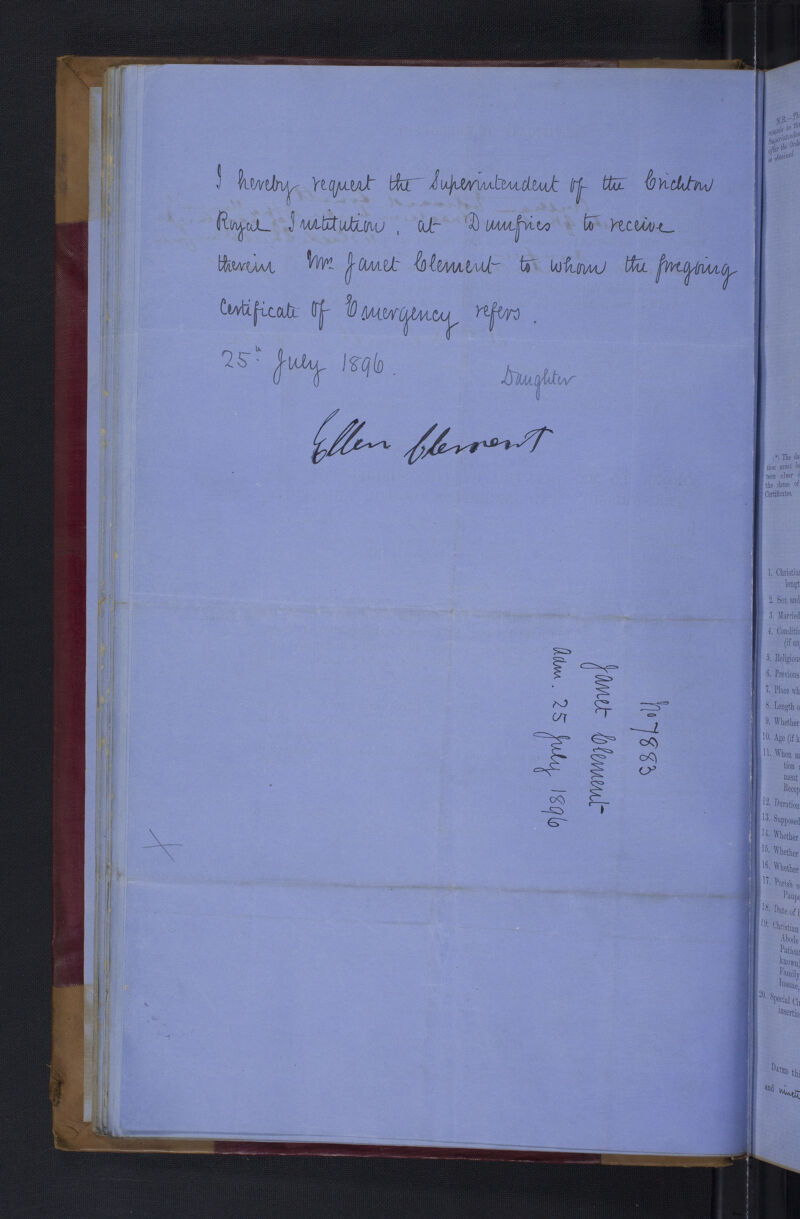 I hereby request the Superintendent of the Crichton
Royal Institution, at Dumfries to receive
therein Mrs. Janet Clement to whom the foregoing
Certificate of Emergency refers.
25th July 1896.
Daughter
Ellen Clement
No 7883
Janet Clement
adm. 25 July 1896
X
N.B.—Th
(*) The da
the dates of
Certificates.
1. Christian
lengt
2. Sex and
3. Married
4. Conditi
(if an
5. Religiou
6. Previous
7. Place wh
8. Length o
9. Whether
10. Age (if k
11. When a
tion
Recep
12. Duration
13. Supposed
14. Whether
15. Whether
16. Whether
17. Parish
Paupe
18. Date of
19. Christian
Abode
Patient
known
Family
Insane,
20. Special Ci
insertio
Dated thi
and ninety